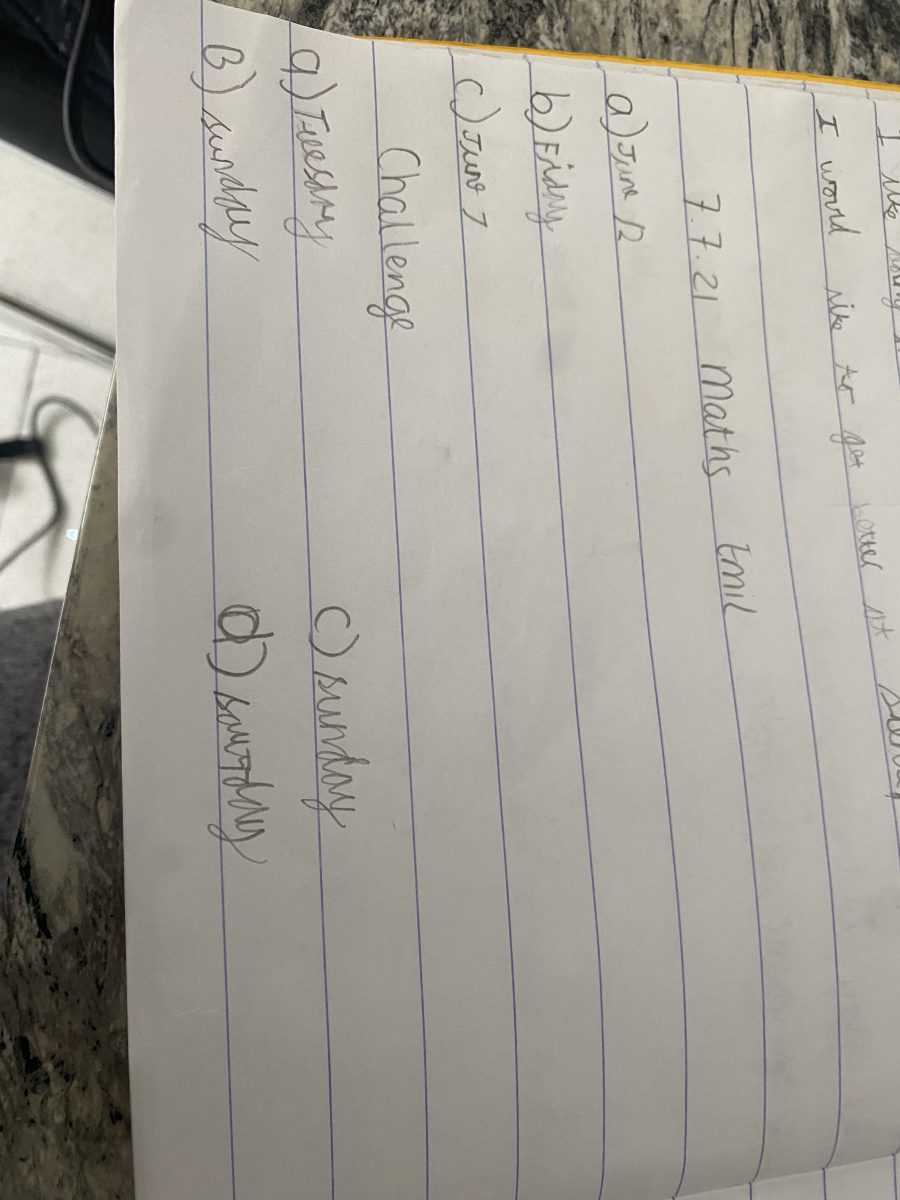 I like
I would like to get better at
7.7.21 Maths Emil
a) June 12
b) Friday
c) June 7
Challenge
a) Tuesday c) sunday
B) sunday d) saurday